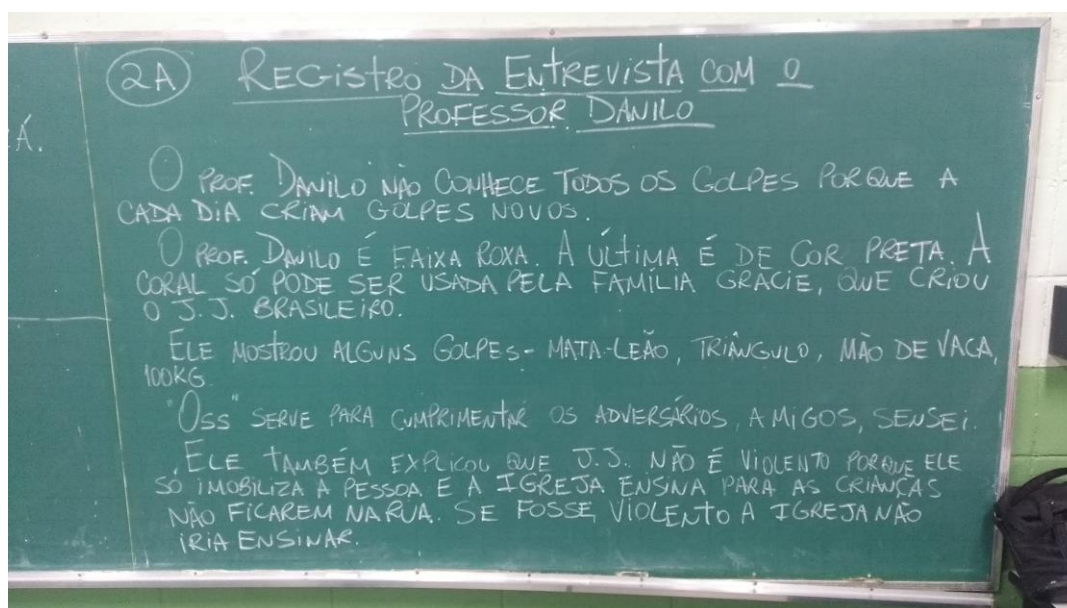 Á.
2A REGISTRO DA ENTREVISTA COM O
PROFESSOR DANILO
O PROF. DANILO NÃO CONHECE TODOS OS GOLPES PORQUE A
CADA DIA CRIAM GOLPES NOVOS.
O PROF. DANILO É FAIXA ROXA. A ÚLTIMA É DE COR PRETA. A
CORAL SÓ PODE SER USADA PELA FAMÍLIA GRACIE, QUE CRIOU
O J.J. BRASILEIRO.
ELE MOSTROU ALGUNS GOLPES - MATA-LEÃO, TRIÂNGULO, MÃO DE VACA,
100KG.
"OSS" SERVE PARA CUMPRIMENTAR OS ADVERSÁRIOS, AMIGOS, SENSEI.
ELE TAMBÉM EXPLICOU QUE J.J. NÃO É VIOLENTO PORQUE ELE
SÓ IMOBILIZA A PESSOA E A IGREJA ENSINA PARA AS CRIANÇAS
NÃO FICAREM NA RUA. SE FOSSE VIOLENTO A IGREJA NÃO
IRIA ENSINAR.